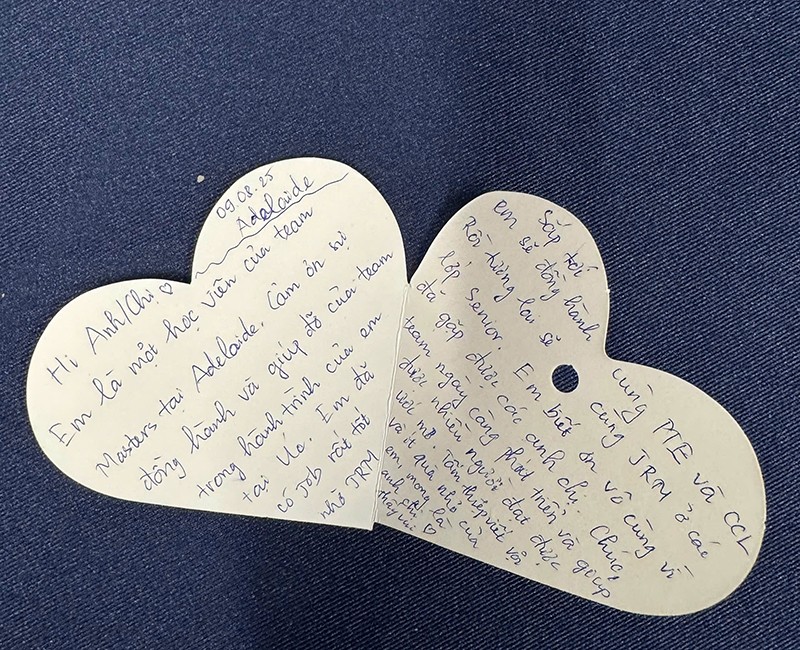 09.08.25
Adelaide
Hi Anh/Chị ♡
Em là một học viên của team
Masters tại Adelaide. Cảm ơn sự
đồng hành và giúp đỡ của team
trong hành trình của em
tại Úc. Em đã
có job rất tốt
nhờ JRM
Sắp tới
em sẽ đồng hành cùng PTE và CCL
Rồi tương lai sẽ cùng JRM ở các
lớp Senior. Em biết ơn vô cùng vì
đã gặp được các anh chị. Chúc
team ngày càng phát triển và giúp
được nhiều người đạt được
ước mơ. Tấm thiệp viết vội
và ít quà nhỏ của
em, mong là
anh chị
thấy vui ♡